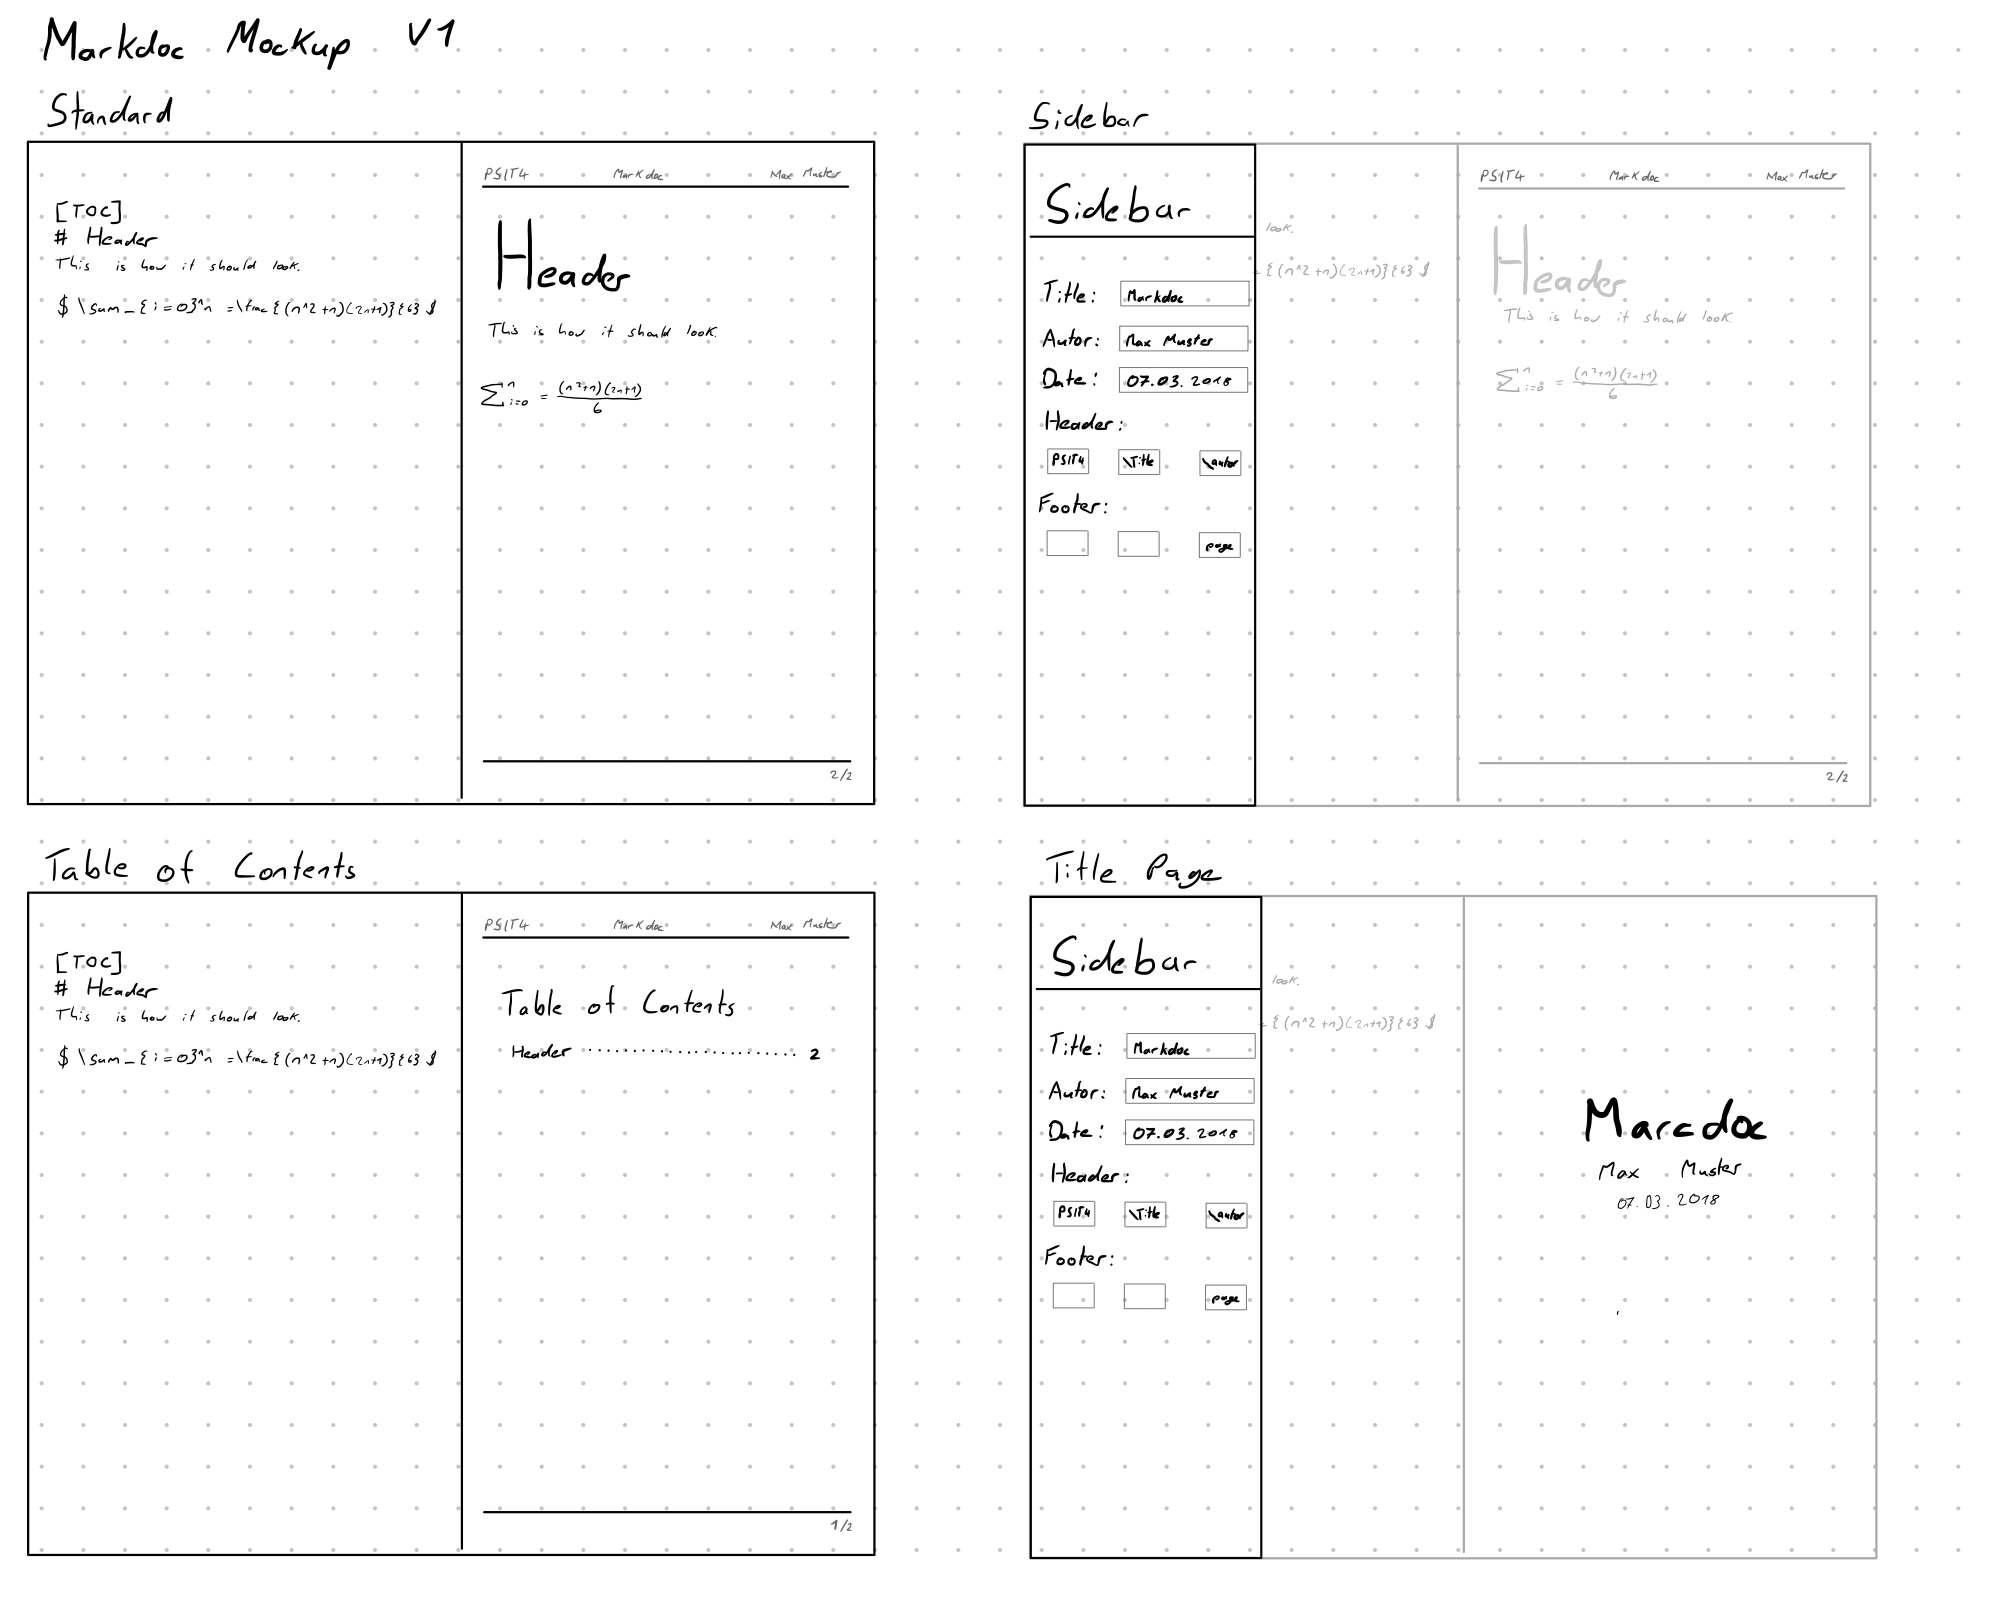 Markdoc Mockup V1
Standard
[TOC]
# Header
This is how it should look.
$ \sum_{i=0}^n =\frac{(n^2+n)(2n+1)}{6} $
PSIT4 Markdoc Max Muster
Header
This is how it should look.
∑ n i=0 = (n²+n)(2n+1) / 6
2/2
Sidebar
Sidebar
Title: Markdoc
Autor: Max Muster
Date: 07.03.2018
Header:
PSIT4 \Title \autor
Footer:
page
look.
{(n^2+n)(2n+1)}{6} $
PSIT4 Markdoc Max Muster
Header
This is how it should look.
∑ n i=0 = (n²+n)(2n+1) / 6
2/2
Table of Contents
[TOC]
# Header
This is how it should look.
$ \sum_{i=0}^n =\frac{(n^2+n)(2n+1)}{6} $
PSIT4 Markdoc Max Muster
Table of Contents
Header ........................ 2
1/2
Title Page
Sidebar
Title: Markdoc
Autor: Max Muster
Date: 07.03.2018
Header:
PSIT4 \Title \autor
Footer:
page
look.
{(n^2+n)(2n+1)}{6} $
Marcdoc
Max Muster
07.03.2018